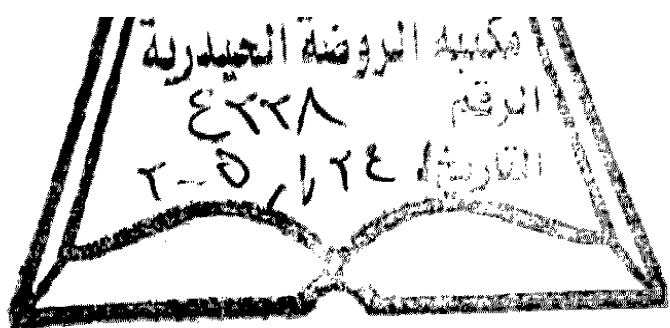 مكتبة الروضة الحيدرية
الرقم ٤٢٢٨
التاريخ ٢٤ / ١ / ٢٠٠٥